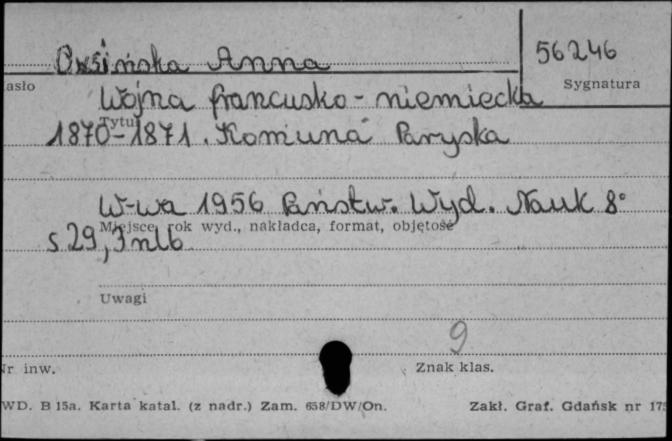 Owsińska Anna
56246
asło
Sygnatura
Wojna francusko-niemiecka
Tytuł
1870-1871. Komuna Paryska
W-wa 1956 Państw. Wyd. Nauk 8°
Miejsce, rok wyd., nakładca, format, objętość
s 29, 3 nlb
Uwagi
9
Nr inw.
Znak klas.
WD. B 15a. Karta katal. (z nadr.) Zam. 658/DW/On.
Zakł. Graf. Gdańsk nr 173